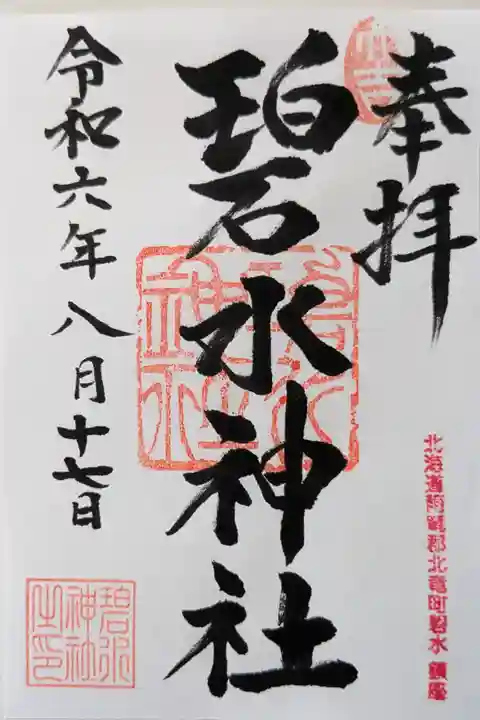 奉拝
碧水神社
令和六年八月十七日
北海道雨竜郡北竜町碧水 鎮座
碧水
神社
之印